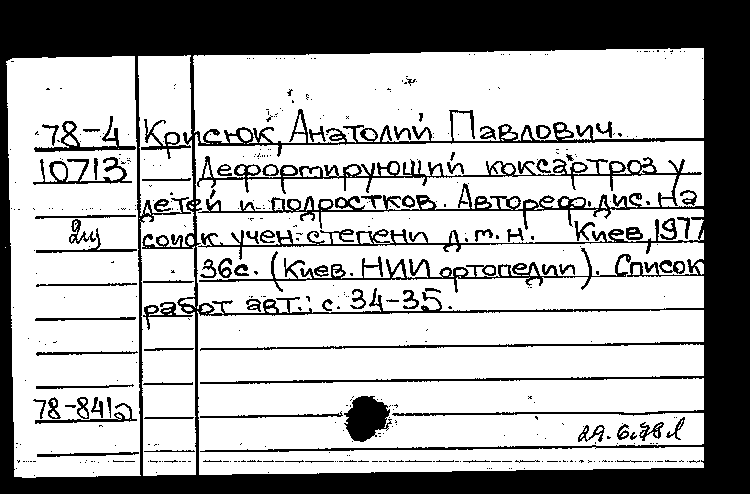 78-4 Крисюк, Анатолий Павлович.
10713 Деформирующий коксартроз у
детей и подростков. Автореф. дис. на
2ш соиск. учен. степени д.м.н. Киев, 1977
36с. (Киев. НИИ ортопедии). Список
работ авт.: с. 34-35.
78-841
29.6.78